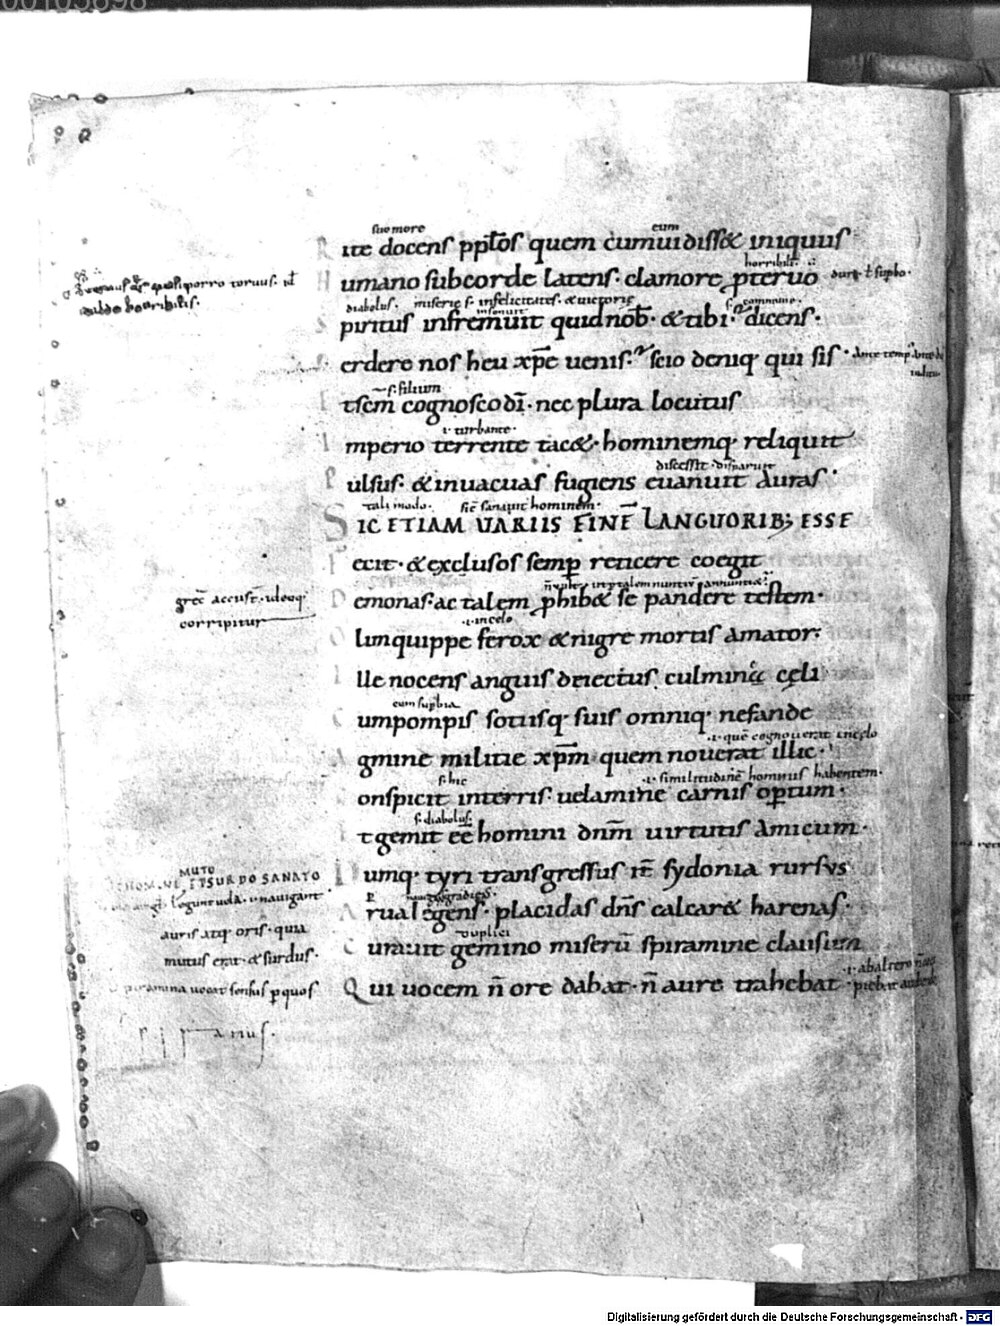 00105698
suo more eum
Rite docens pp̄lōs quem cum uidiss& iniquus
horribili
Humano sub corde latens· clamore proteruo
diabolus· miserię ſ· infelicitates· & uictorię ſ· commune·
Spiritus infremuit quid nob̄· & tibi dicens·
insonuit
erdere nos heu xp̄e uenis· scio deniq· qui sis·
ſ· filium
Et sēm cognosco dī· nec plura locutus
i· turbante·
Imperio terrente tac&· hominemq· reliquit
discessit· disparuit
Pulsus· & inuacuas fugiens euanuit auras·
tali modo· sic̄ sanauit hominem·
SIC ETIAM UARIIS FINĒ LANGUORIB; ESSE
Fecit· & exclusos semp̄ reticere coegit
Demonas· ac talem prohib& se pandere testem·
i· in celo
Olim quippe ferox & nigre mortis amator·
Ille nocens anguis deiectus culmine cęli
cum supbia
Cum pompis sotiisq· suis omniq· nefande
i· quē cognouerat in celo
Agmine militie xp̄m quem nouerat illic·
ſ· hic i· similitudinē hominis habentem·
Conspicit in terris· uelamine carnis opertum·
ſ· diabolus·
Et gemit ēē homini dn̄m uirtutis amicum·
Dumq· tyri transgressus it̄ sydonia rursus
Arua legens· placidas dn̄s calcar& harenas·
duplici
Curauit gemino miserū spiramine clausum
Qui uocem n̄ ore dabat· n̄ aure trahebat·
grec̄ accus̄t· ideoq·
corripitur
MUTO
ET SURDO SANATO
auris atq· oris· quia
mutus erat· & surdus·
spiramina uocat sensus p quos
Digitalisierung gefördert durch die Deutsche Forschungsgemeinschaft - DFG